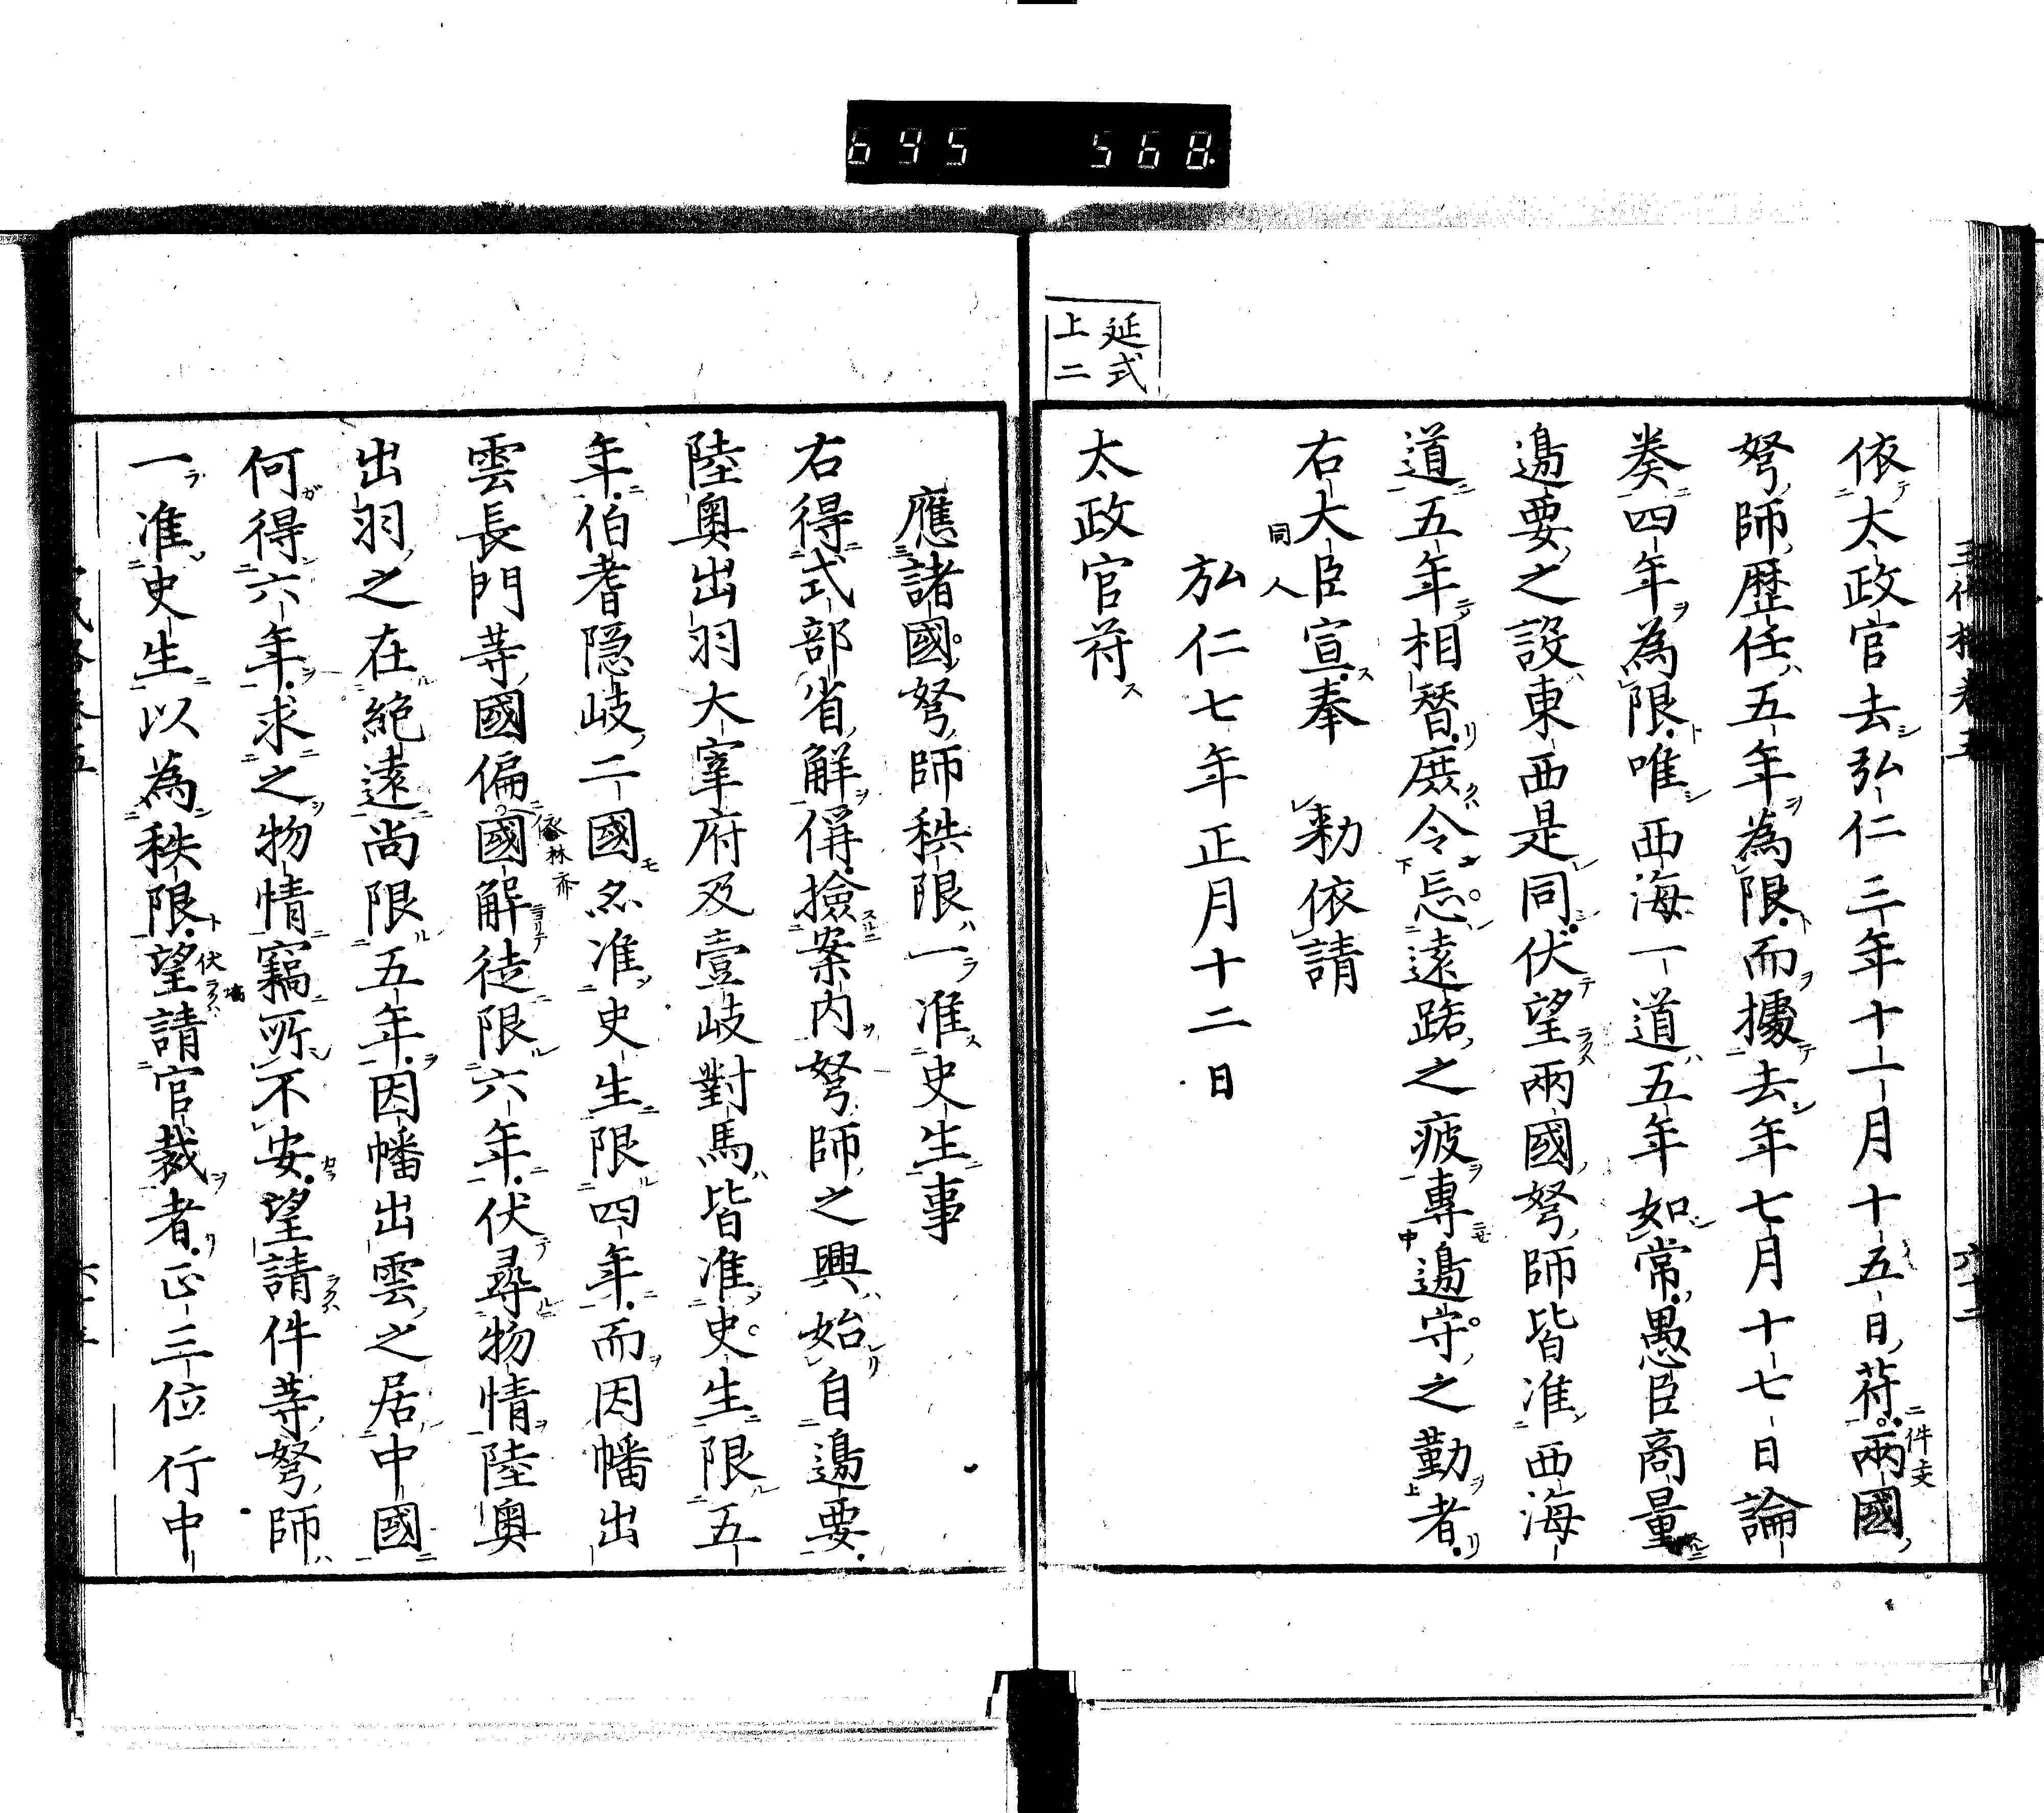 695 568
延式
上二
依太政官去弘仁三年十一月十五日符兩國
弩師歴任五年為限而據去年七月十七日論
奏四年為限唯西海一道五年如常愚臣商量
邊要之設東西是同伏望兩國弩師皆准西海
道五年相替庶令忘遠踏之疲專邊守之勤者
右大臣宣奉　勅依請
同人
弘仁七年正月十二日
太政官符
應諸國弩師秩限一准史生事
右得式部省解偁撿案内弩師之興始自邊要
陸奧出羽大宰府及壹岐對馬皆准史生限五
年伯耆隠岐二國亦准史生限四年而因幡出
雲長門等國偏國解徒限六年伏尋物情陸奧
出羽之在絶遠尚限五年因幡出雲之居中國
何得六年求之物情竊所不安望請件等弩師
一准史生以為秩限望請官裁者正三位行中